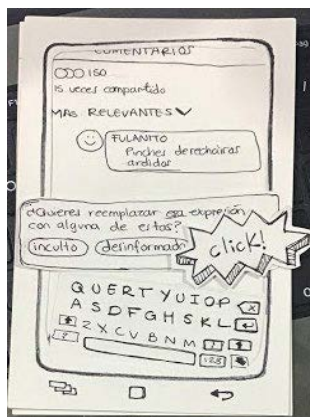 COMENTARIOS
150
15 veces compartido
MAS RELEVANTES
FULANITO
Pinches derechairas
ardidos
¿Quieres reemplazar esa expresión
con alguna de estas?
inculto desinformado
click!
QUERTYUIOP
ASDFGHSKL
ZXCVBNM
?
123